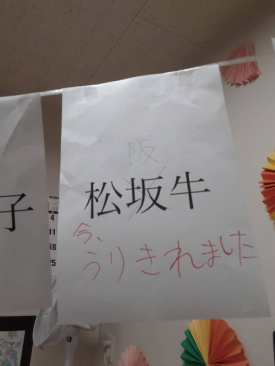 阪
松坂牛
今、
うりきれました
子
4
11
18
5